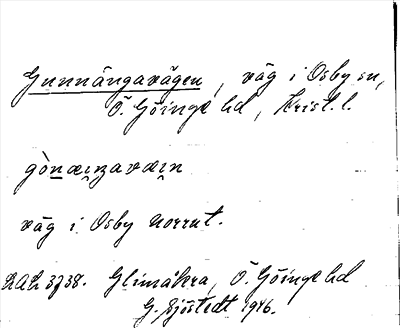 Gunnängavägen, väg i Osby sn,
Ö. Göinge hd, Krist. l.
gònæŋavæin
väg i Osby norrut.
3738. Glimåkra, Ö. Göinge hd
G. Sjöstedt 1946.